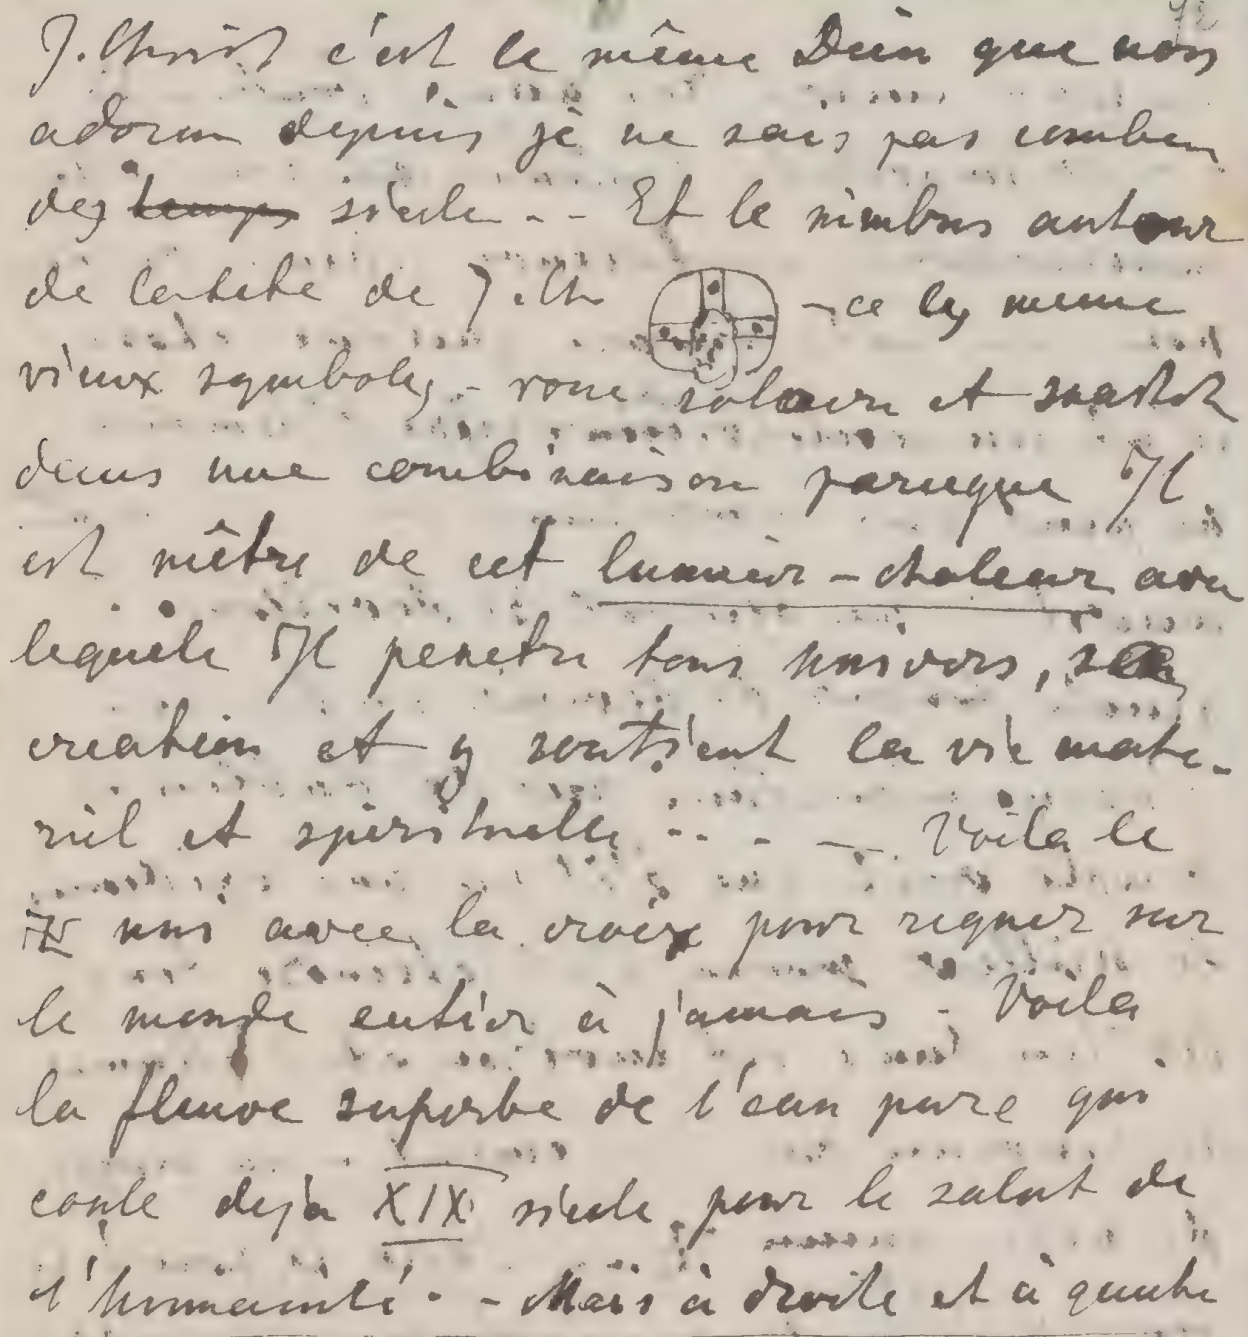 J. Christ c'est le même Dieu que nous
adorons depuis je ne sais pas combien
des temps siecle - - Et le nimbus autour
de la tête de J. Ch - ce les meme
vieux symboles - roue solaire et svastik
dans une combinaison parceque Il
est mêtre de cet lumièr - chaleur avec
lequele Il penetre tous univers, sa
creation et y soutient la vie mate-
riel et spirituelle . . . - Voila le
卍 uni avec la croix pour regner sur
le monde entier à jamais - Voila
la fleuve superbe de l'eau pure qui
coule deja XIX siecle pour le salut de
l'humainté. - Mais à droite et à gauche